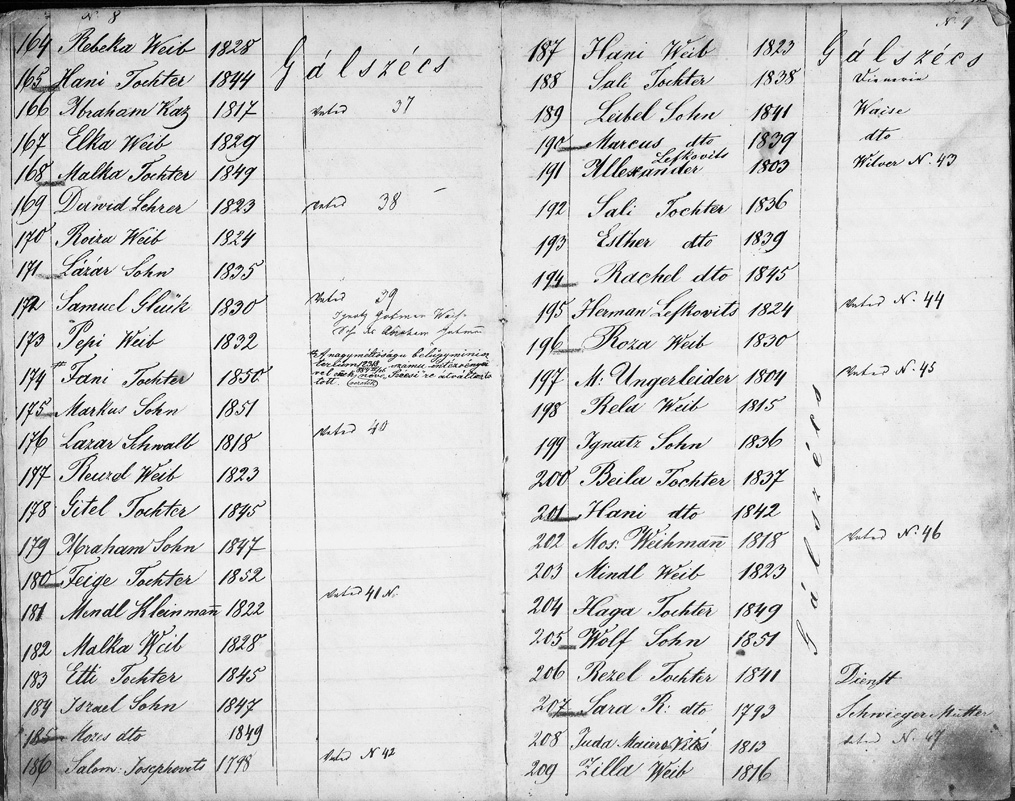 N. 8
164 Rebeka Weib 1828 Gálszécs
165 Hani Tochter 1844
166 Abraham Kaz 1817 37
167 Elka Weib 1829
168 Malka Tochter 1849
169 Dawid Lehrer 1823 38
170 Roiza Weib 1824
171 Lázár Sohn 1835
172 Samuel Glük 1830 39
173 Pepi Weib 1832
A nagyméltóságu belügyminis
174 Fani Tochter 1850
175 Markus Sohn 1851
176 Lazar Schwalb 1818 40
177 Weib 1823
178 Gitel Tochter 1845
179 Abraham Sohn 1847
180 Feige Tochter 1852
181 Mendl Kleinmañ 1822 41 N.
182 Malka Weib 1828
183 Etti Tochter 1845
184 Israel Sohn 1847
185 Mozes dto 1849
186 Salom. Josephovits 1798 N 42
N. 9
187 Hani Weib 1823 Gálszécs
188 Sali Tochter 1838
189 Leibel Sohn 1841 Waise
190 Marcus dto 1839 dto
191 Allexander Lefkovits 1803 N. 43
192 Sali Tochter 1836
193 Esther dto 1839
194 Rachel dto 1845
195 Herman Lefkovits 1824 N. 44
196 Roza Weib 1830
197 M: Ungerleider 1804 N. 45
198 Rela Weib 1815
199 Ignatz Sohn 1836
200 Beila Tochter 1837
201 Hani dto 1842
202 Mos: Weihmañ 1818 N. 46
203 Mindl Weib 1823
Gálszécs
204 Haga Tochter 1849
205 Wolf Sohn 1851
206 Rezel Tochter 1841 Dienst
207 Sara R: dto 1793 Schwieger Mutter
208 Juda Maierovits 1813 N. 47
209 Zilla Weib 1816